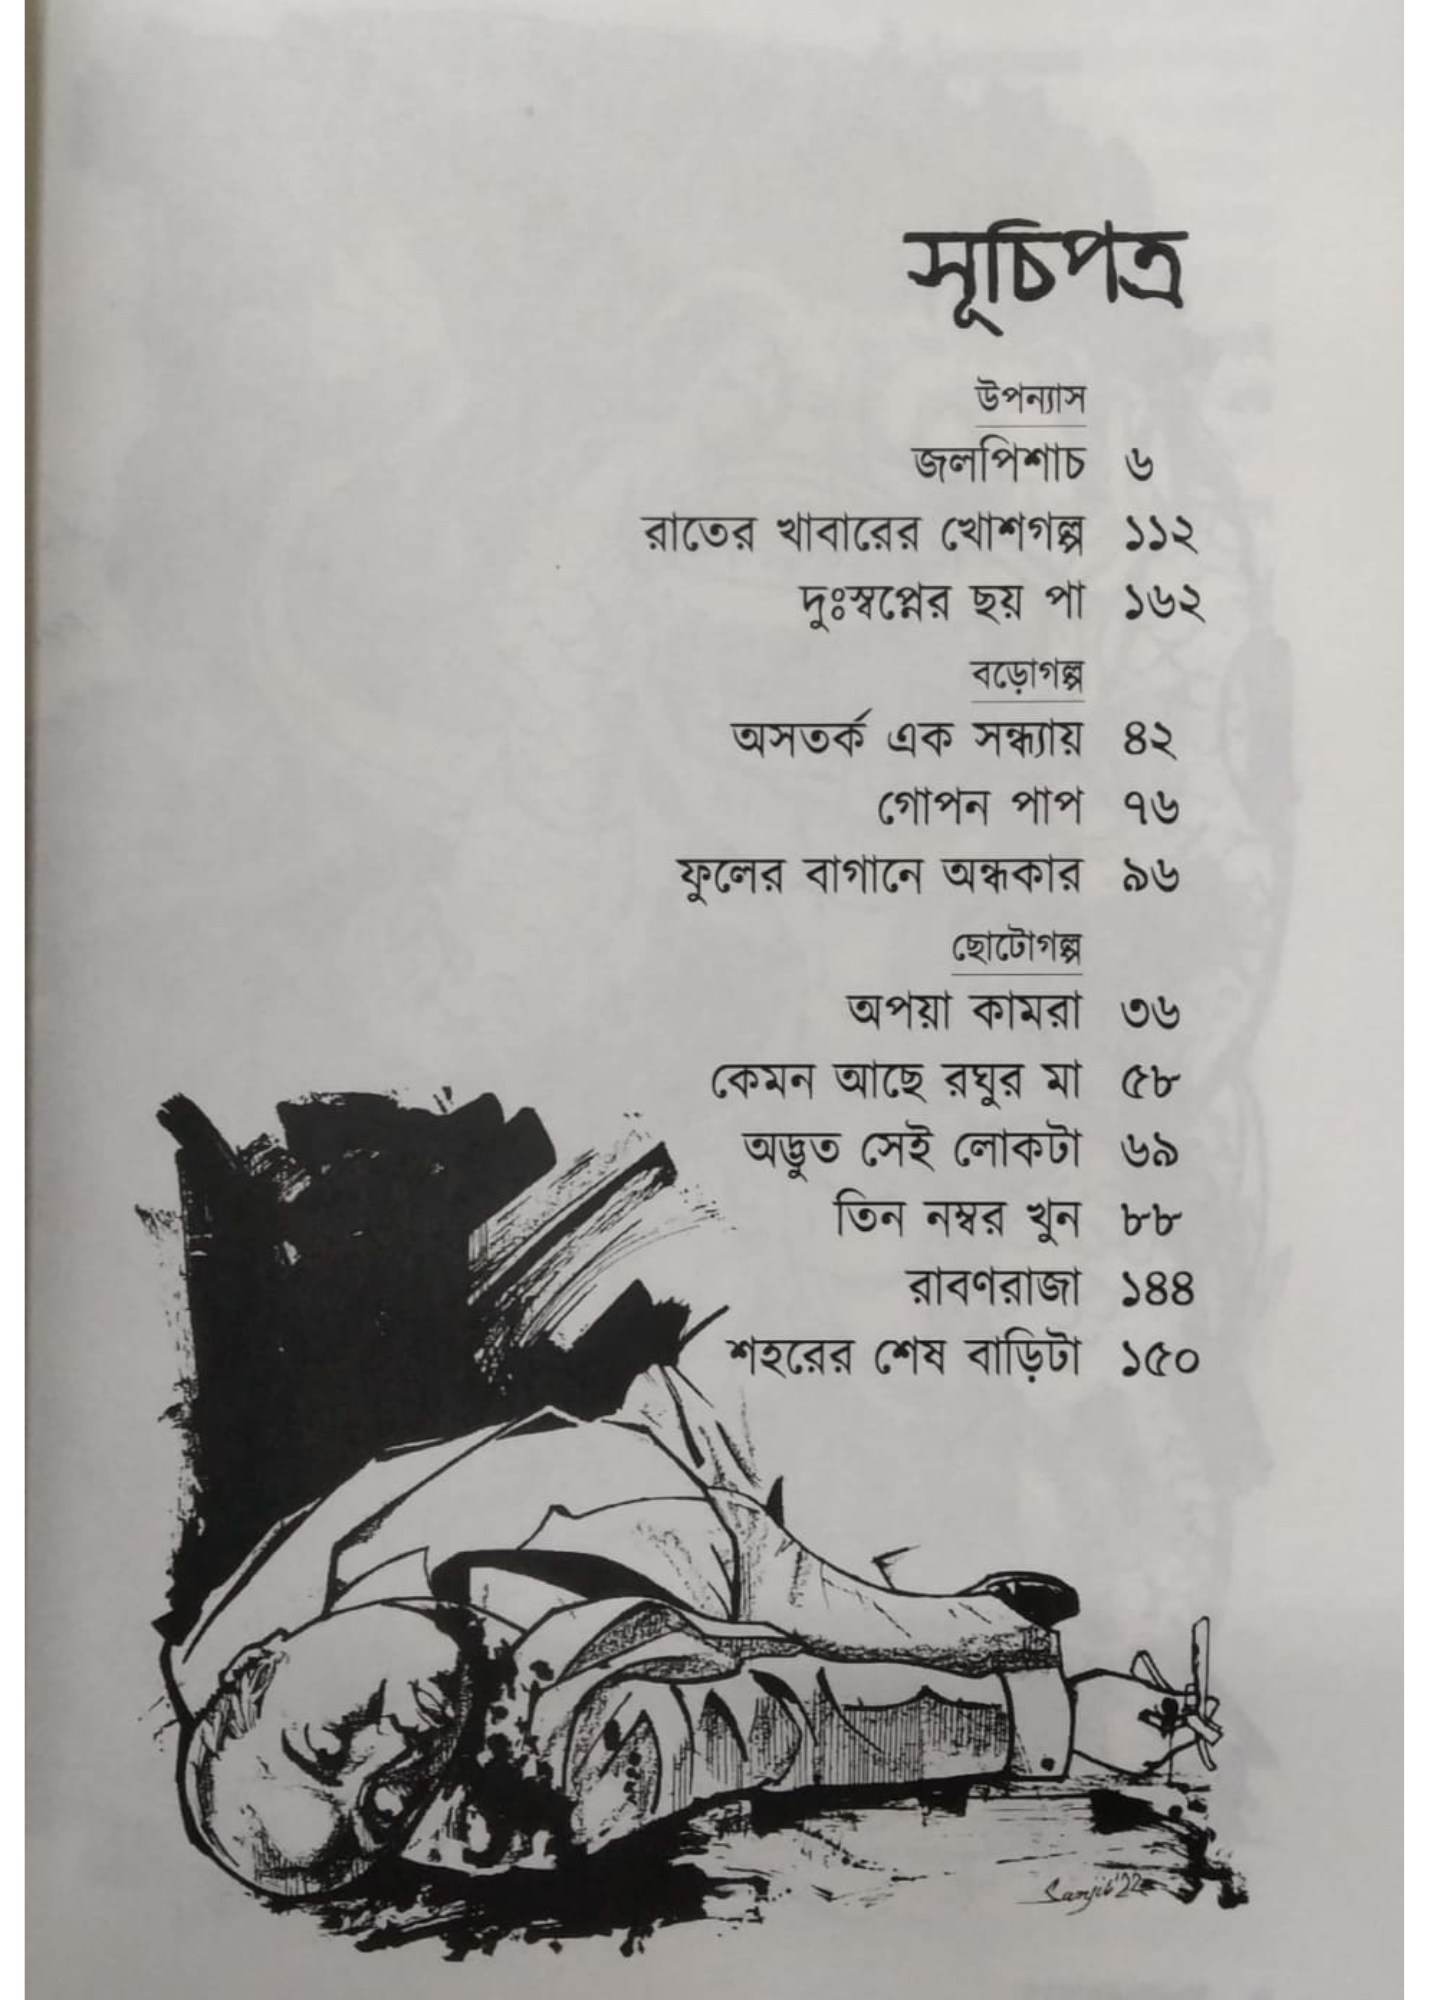 সূচিপত্র
উপন্যাস
জলপিশাচ ৬
রাতের খাবারের খোশগল্প ১১২
দুঃস্বপ্নের ছয় পা ১৬২
বড়োগল্প
অসতর্ক এক সন্ধ্যায় ৪২
গোপন পাপ ৭৬
ফুলের বাগানে অন্ধকার ৯৬
ছোটোগল্প
অপয়া কামরা ৩৬
কেমন আছে রঘুর মা ৫৮
অদ্ভুত সেই লোকটা ৬৯
তিন নম্বর খুন ৮৮
রাবণরাজা ১৪৪
শহরের শেষ বাড়িটা ১৫০
Sanjib'22